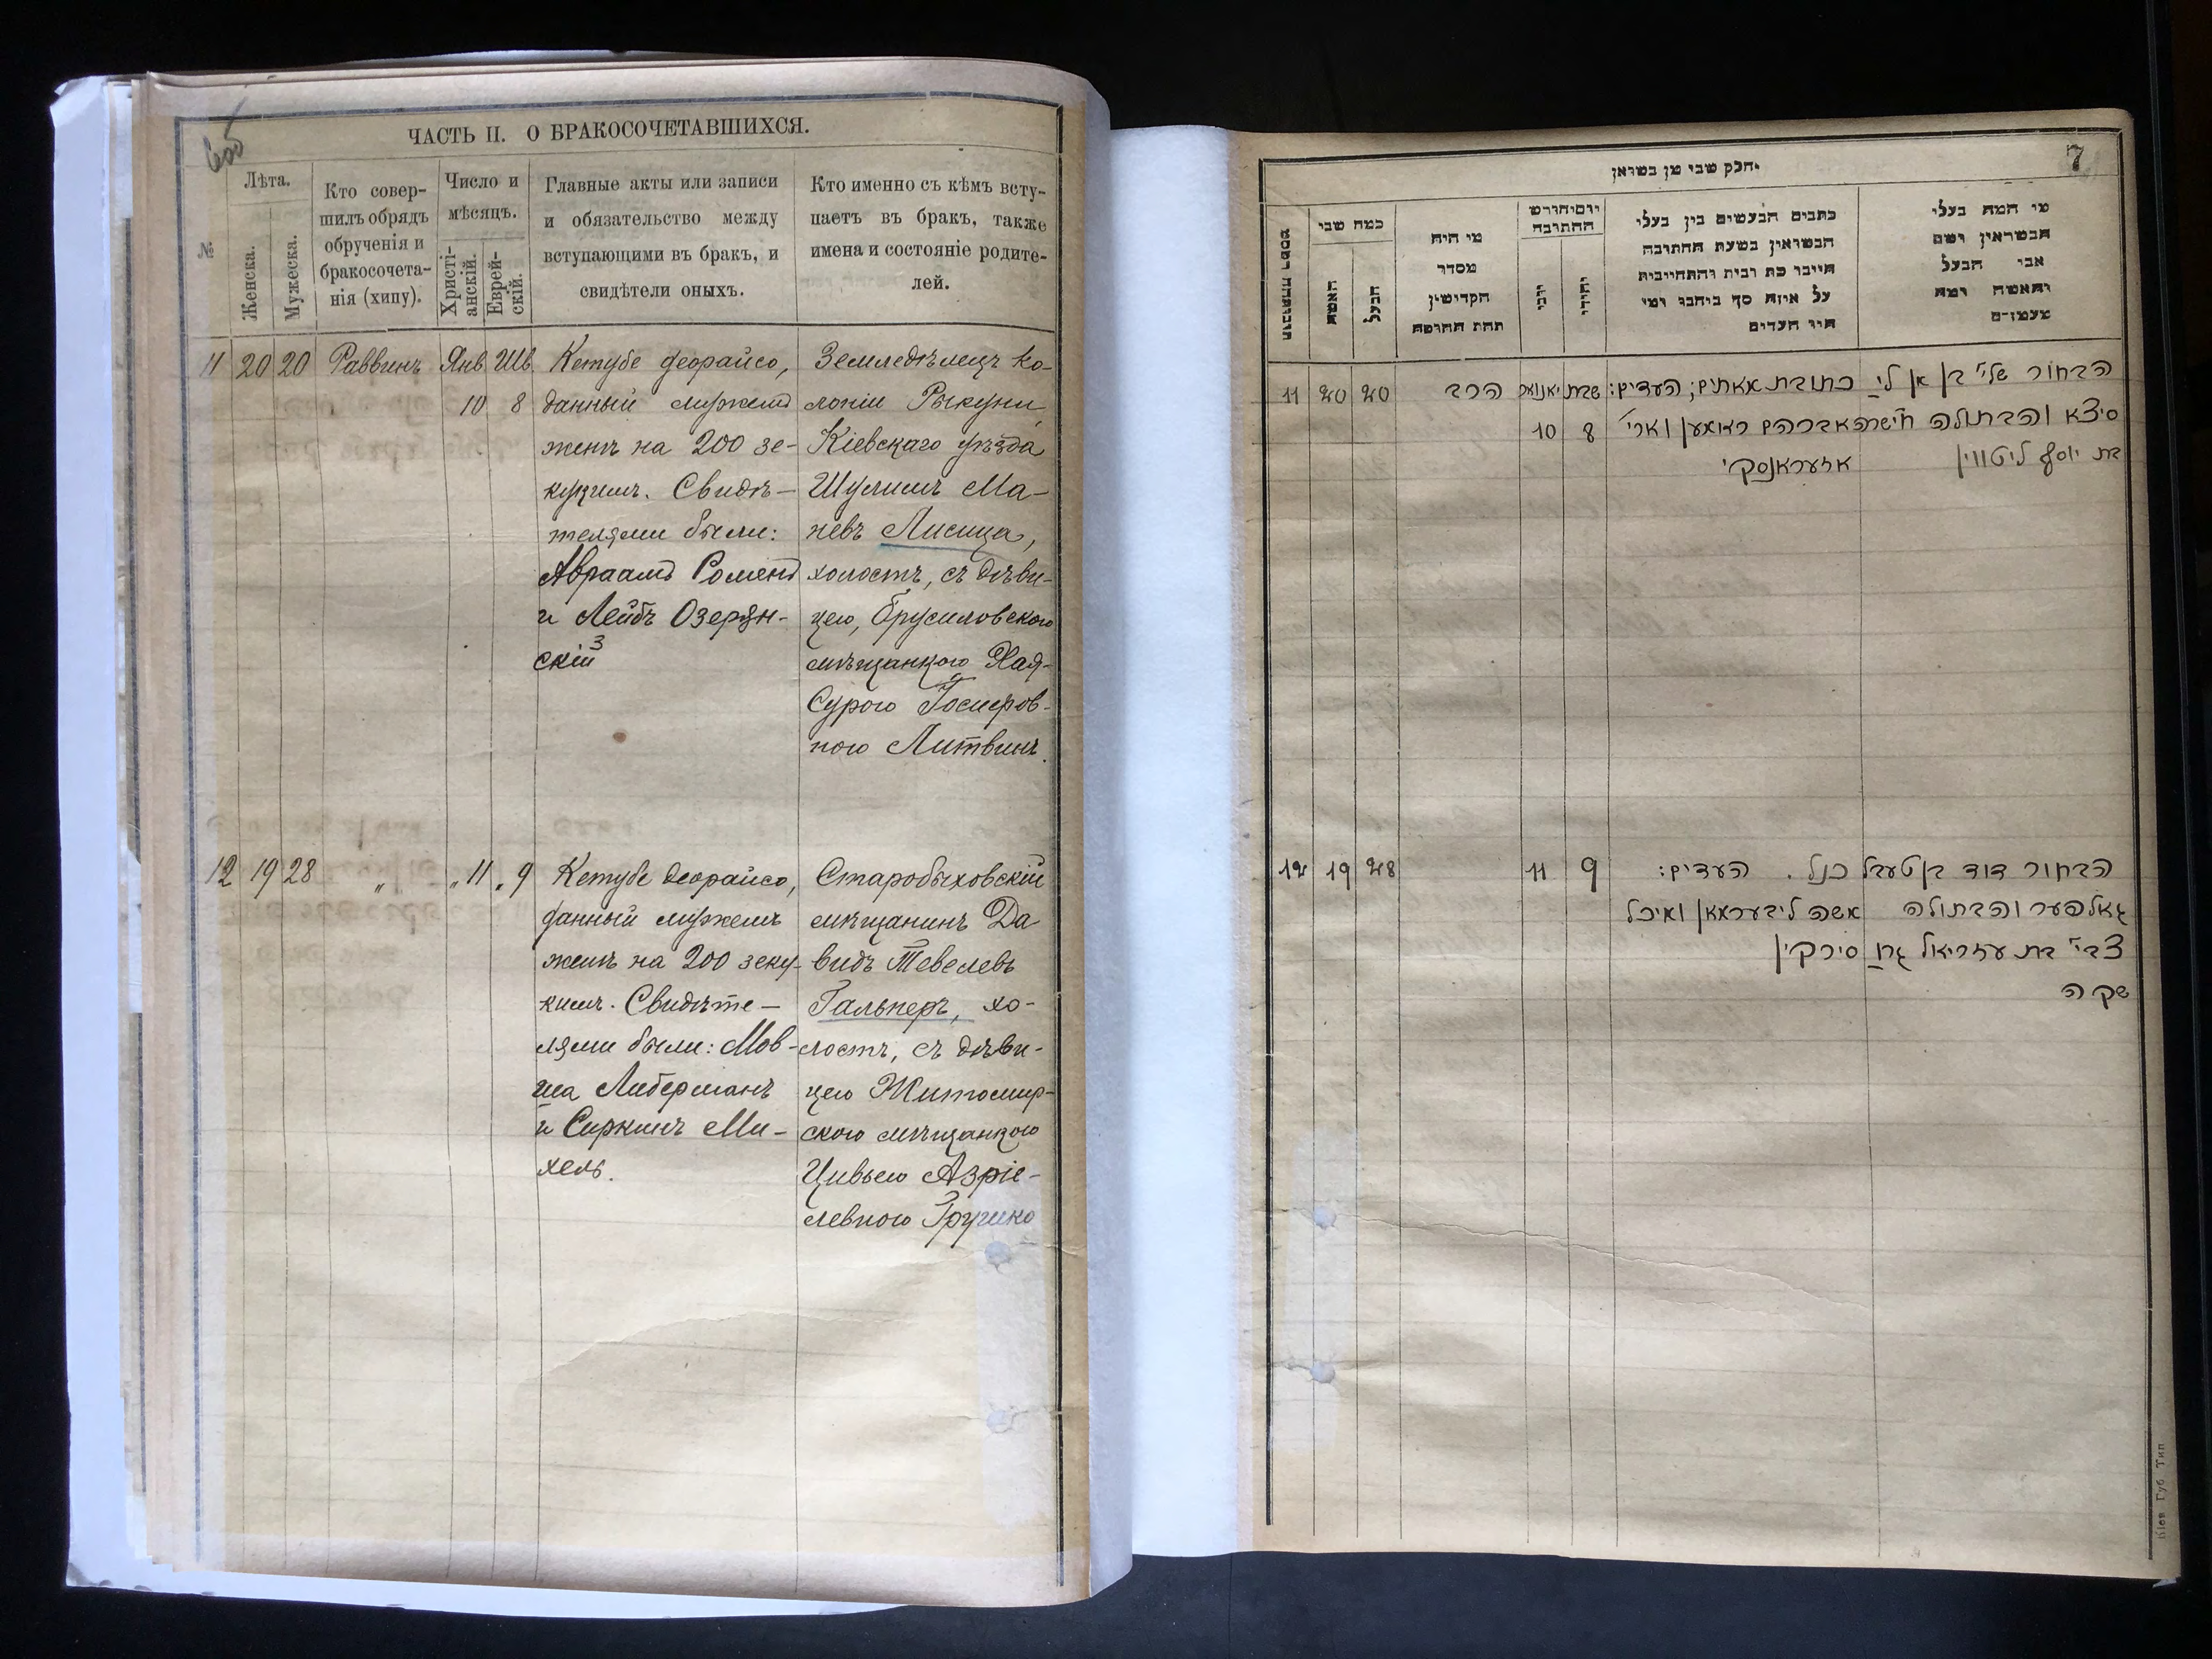 6об
ЧАСТЬ II. О БРАКОСОЧЕТАВШИХСЯ.
№
Лѣта.
Женска.
Мужеска.
Кто совер-
шилъ обрядъ
обрученія и
бракосочета-
нія (хипу).
Число и
мѣсяцъ.
Христі-
анскій.
Еврей-
скій.
Главные акты или записи
и обязательство между
вступающими въ бракъ, и
свидѣтели оныхъ.
Кто именно съ кѣмъ всту-
паетъ въ бракъ, также
имена и состояніе родите-
лей.
11 20 20 Раввинъ Янв 10 Шв. 8
Кетубе деорайсо,
данный мужемъ
женѣ на 200 зе-
кукимъ. Свидѣ-
телями были:
Авраамъ Роменъ
и Лейбъ Озерян-
скій
Земледѣлецъ ко-
лоніи Рыкуни,
Кіевскаго уѣзда
Шулимъ Ма-
невъ Лисица,
холостъ, съ дѣви-
цею, Брусиловскою
мѣщанкою Хая-
Сурою Іосифов-
ною Литвинъ.
12 19 28 „ „ 11 „ 9
Кетубе деорайсо,
данный мужемъ
женѣ на 200 зеку-
кимъ. Свидѣте-
лями были: Мов-
ша Либерманъ
и Сиркинъ Ми-
хель.
Старобыховскій
мѣщанинъ Да
видъ Тевелевъ
Гальперъ, хо-
лостъ, съ дѣви-
цею Житомир-
скою мѣщанкою
Цивьею Азріе-
левною Грушко
7
חלק שני מן נשואין
מי המה בעלי
הנשואין ושם
אבי הבעל
והאשה ומה
מעמדם
כתבים הנעשים בין בעלי
הנשואין בשעת החתונה
היינו כת רבית והתחייבות
על איזה סך ביחבו ומי
היו העדים
החתונה
מי היה
מסדר
הקדושין
תחת החופה
כמה שני
הבעל
האשה
11 20 20 הרב יאנואר 10 שבת 8
העדים:
אברהם ראמען וארי׳
אזעראנסקי
סיצא והבתולה
בת יוסף ליטווין
12 19 28 11 9
כנל. העדים:
משה ליבערמאן ומיכל
סירקין
הבחור דוד בן טעבל
גאלפער והבתולה
צבי׳ בת עזריאל גרו
שקה
Кіев Губ Тип